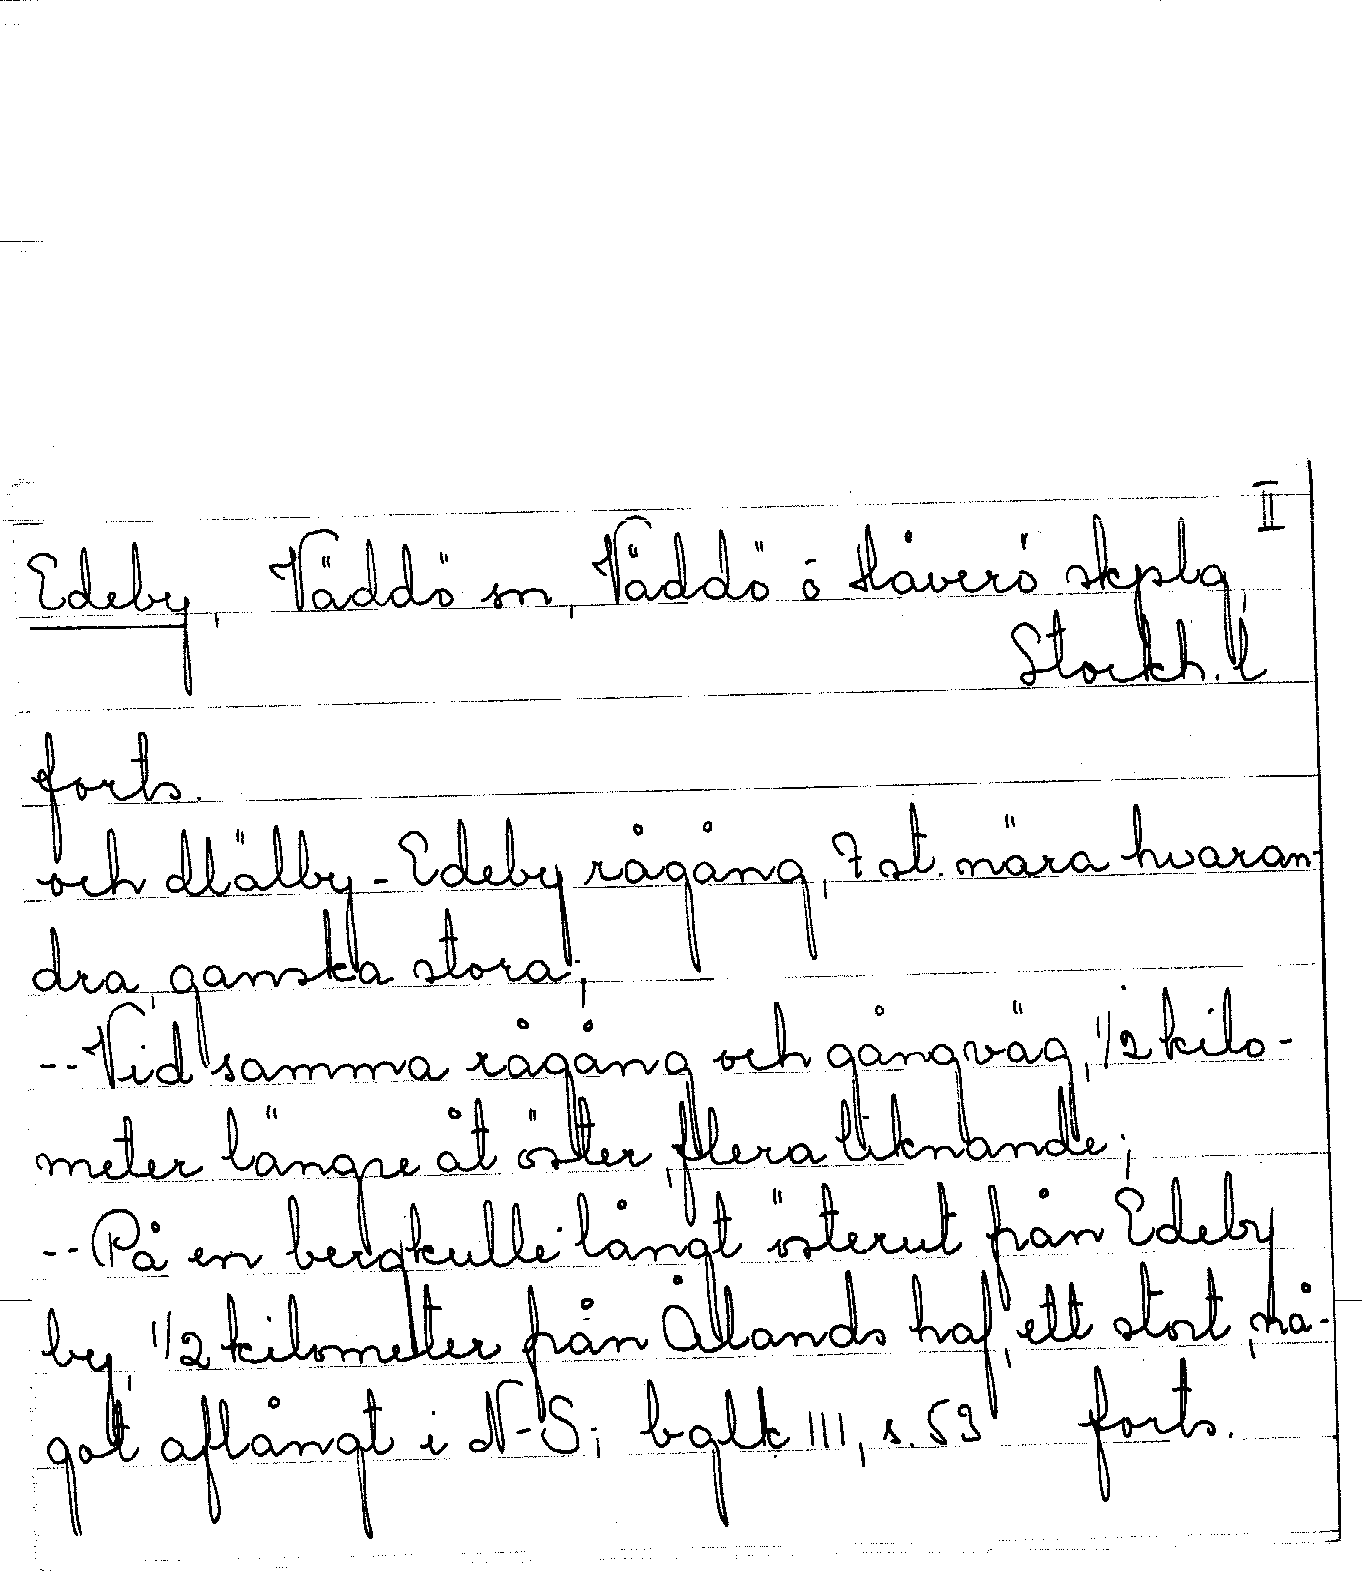 II
Edeby, Väddö sn, Väddö ö Häverö skplg,
Stockh. l
forts.
och Mälby-Edeby rågång, 7 st. nära hvaran-
dra, ganska stora;
-- Vid samma rågång och gångväg, 1/2 kilo-
meter längre åt öster, flera liknande;
-- På en bergkulle långt österut från Edeby
by, 1/2 kilometer från Ålands haf, ett stort, nå-
got aflångt i N-S; bglk III, s. 53 forts.